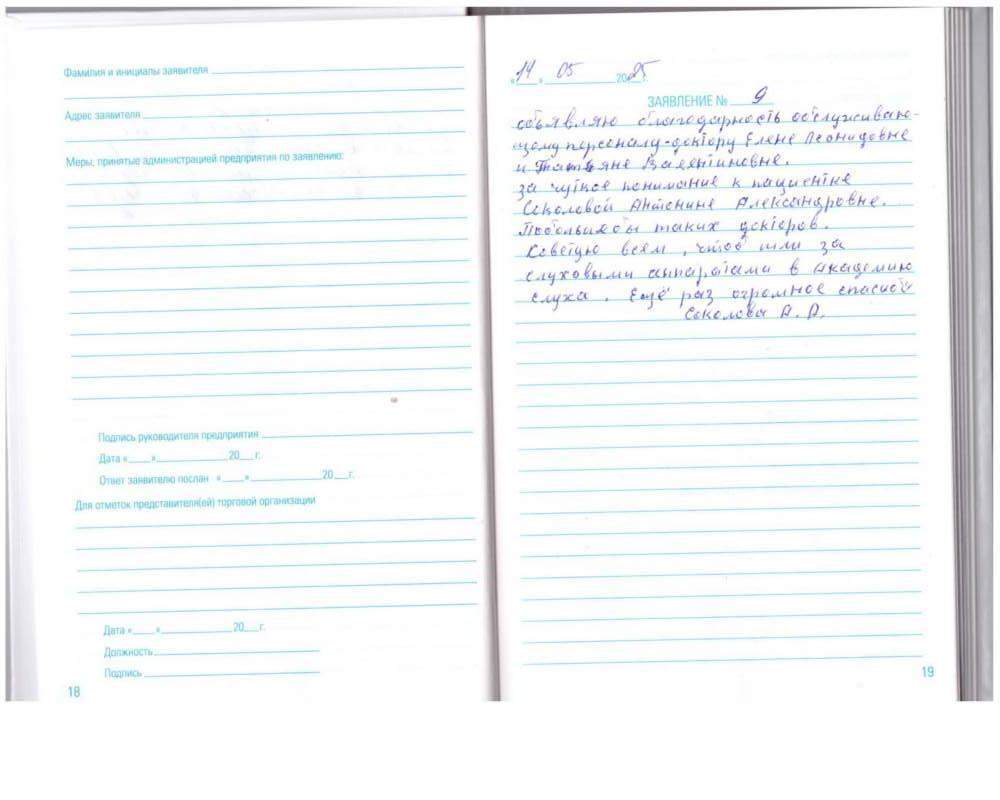 Фамилия и инициалы заявителя
Адрес заявителя
Меры, принятые администрацией предприятия по заявлению:
Подпись руководителя предприятия
Дата «___»___________20___г.
Ответ заявителю послан «___»___________20___г.
Для отметок представителя(ей) торговой организации
Дата «___»___________20___г.
Должность
Подпись
18
«14» 05 2025
ЗАЯВЛЕНИЕ № 9
объявляю благодарность обслуживаю-
щому персоналу-доктору Елене Леонидовне
и Татьяне Валентиновне.
за чуткое понимание к пациентке
Соколовой Антонине Александровне.
Побольше бы таких докторов.
Советую всем, чтоб шли за
слуховыми аппаратами в Академию
слуха. Ещё раз огромное спасибо
Соколова А. А.
19